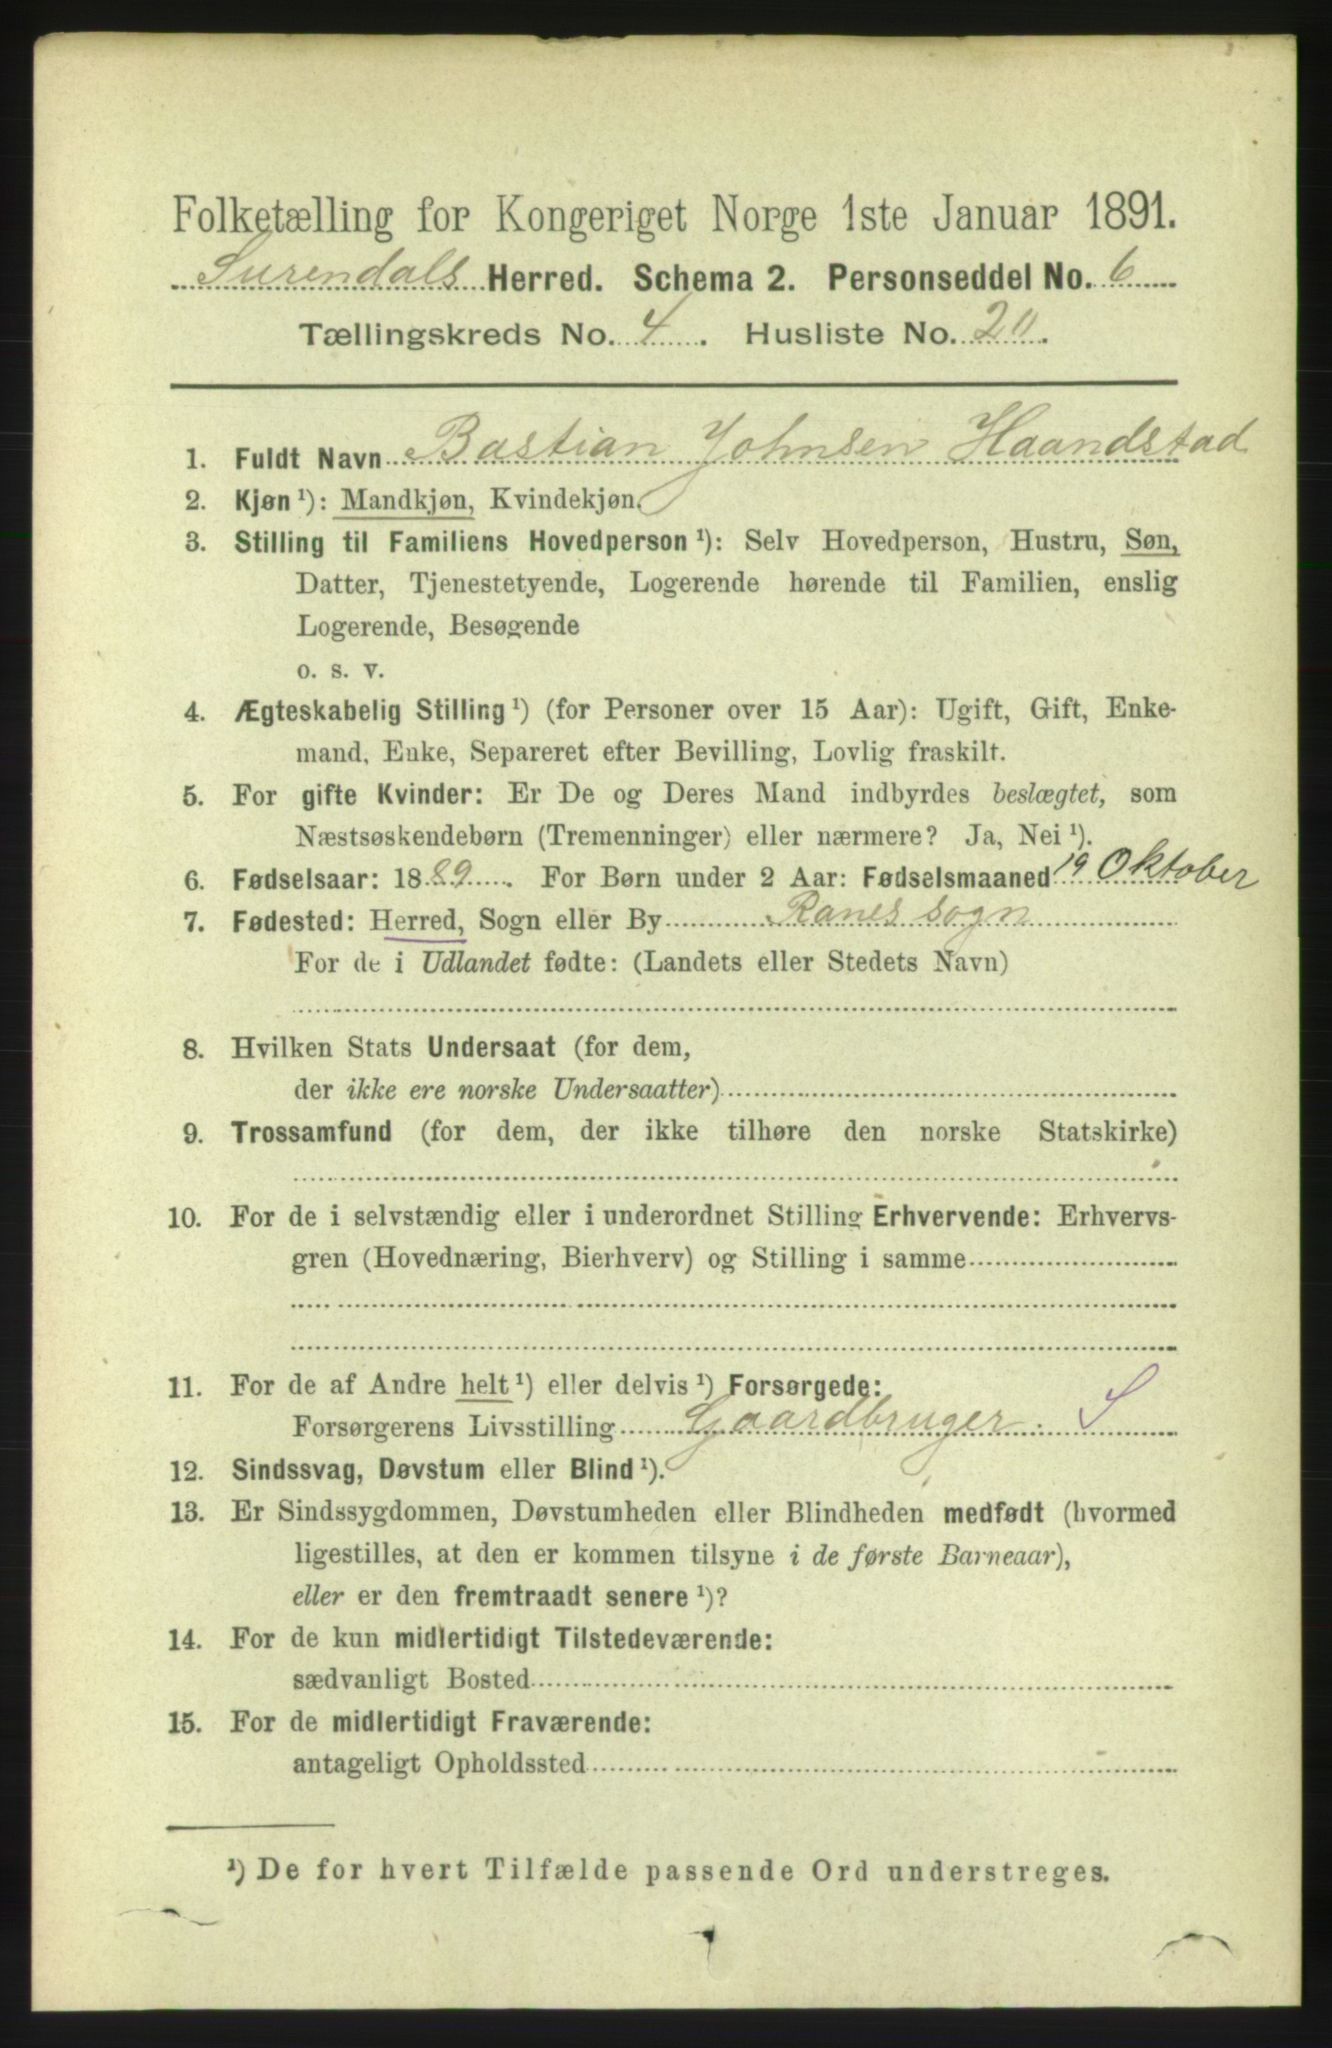 Folketælling for Kongeriget Norge 1ste Januar 1891.
Surendals Herred. Schema 2. Personseddel No. 6
Tællingskreds No. 4. Husliste No. 20.
1. Fuldt Navn Bastian Johnsen Haandstad
2. Kjøn ¹): Mandkjøn, Kvindekjøn.
3. Stilling til Familiens Hovedperson ¹): Selv Hovedperson, Hustru, Søn,
Datter, Tjenestetyende, Logerende hørende til Familien, enslig
Logerende, Besøgende
o. s. v.
4. Ægteskabelig Stilling ¹) (for Personer over 15 Aar): Ugift, Gift, Enke-
mand, Enke, Separeret efter Bevilling, Lovlig fraskilt.
5. For gifte Kvinder: Er De og Deres Mand indbyrdes beslægtet, som
Næstsøskendebørn (Tremenninger) eller nærmere? Ja, Nei ¹).
6. Fødselsaar: 1889. For Børn under 2 Aar: Fødselsmaaned 19 Oktober
7. Fødested: Herred, Sogn eller By Ranes sogn
For de i Udlandet fødte: (Landets eller Stedets Navn)
8. Hvilken Stats Undersaat (for dem,
der ikke ere norske Undersaatter)
9. Trossamfund (for dem, der ikke tilhøre den norske Statskirke)
10. For de i selvstændig eller i underordnet Stilling Erhvervende: Erhvervs-
gren (Hovednæring, Bierhverv) og Stilling i samme
11. For de af Andre helt ¹) eller delvis ¹) Forsørgede:
Forsørgerens Livsstilling Gaardbruger. S
12. Sindssvag, Døvstum eller Blind ¹).
13. Er Sindssygdommen, Døvstumheden eller Blindheden medfødt (hvormed
ligestilles, at den er kommen tilsyne i de første Barneaar),
eller er den fremtraadt senere ¹)?
14. For de kun midlertidigt Tilstedeværende:
sædvanligt Bosted
15. For de midlertidigt Fraværende:
antageligt Opholdssted
¹) De for hvert Tilfælde passende Ord understreges.